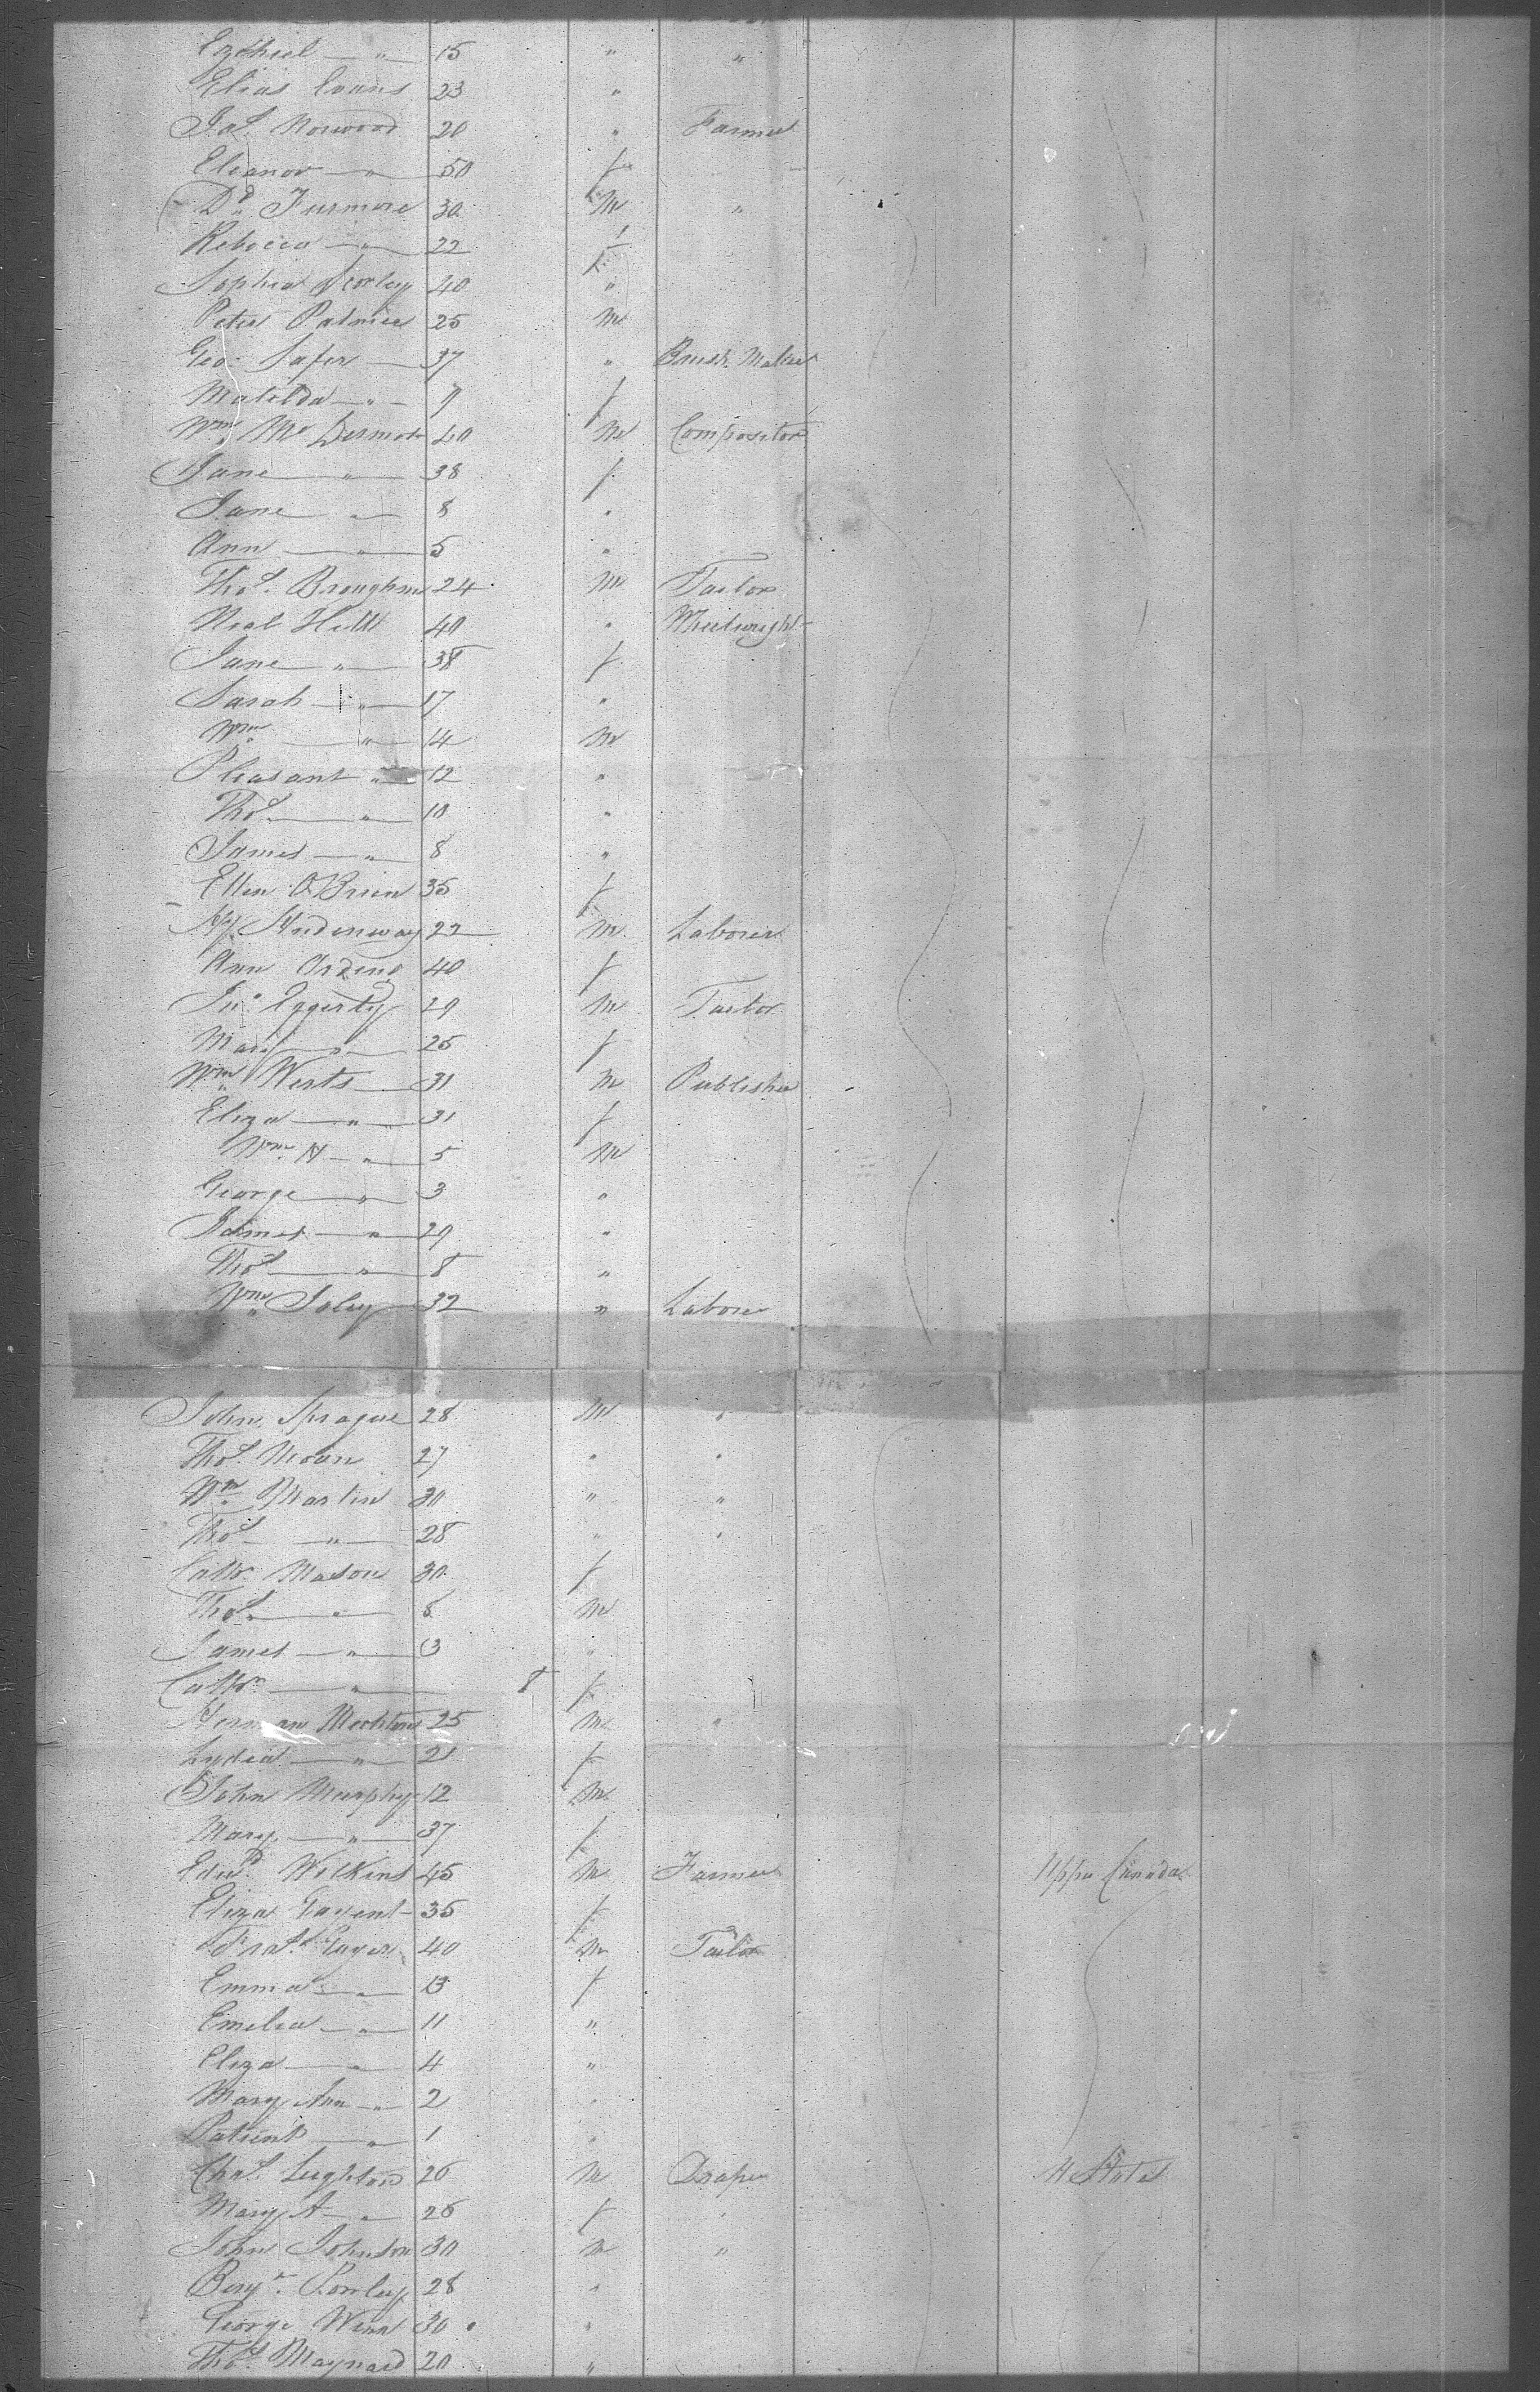 Ezekiel — " — 15 " "
Elias Evans 23 "
Jas. Norwood 20 " Farmer
Eleanor — " — 50 f
Dd. Furmore 30 M "
Rebecca — " — 22 f
Sophia 40 "
Peter Palmer 25 M
Geo. Safer — 37 " Brush Maker
Matilda — " — 9 f
Wm. McDermot 40 M Compositor
Jane — " — 38 f
Jane " — 8 "
Ann — " — 5 "
Thos. Brougham 24 M Tailor
Neal Hill 40 " Wheelwright
Jane — " — 38 f
Sarah — " — 17 "
Wm. — " — 14 M
Pleasant " — 12 "
Thos. — " — 10 "
James — " — 8 "
Ellen O'Brien 35 f
22 M Laborer
Ann 40 f
Jno. Eggerty 29 M Tailor
Mary — " — 25 f
Wm. Werts — 31 M Publisher
Eliza — " — 31 f
Wm. H — " — 5 M
George — " — 3 "
James — " — 29 "
Thos. — " — 8 "
Wm. Joley — 32 " Laborer
John Sprague 28 M "
Thos. Moan 27 " "
Wm. Martin 30 " "
Thos. — " — 28 " "
Cath. Mason 30 f
Thos. — " — 8 M
James — " — 3 "
Cath. — " — 8 f
Herman 25 M "
Lydia — " — 21 f
John Murphy 12 M
Mary — " — 37 f
Edwd. Wilkins 45 M Farmer Upper Canada
Eliza Gagent — 35 f
Fras. Gager 40 M Tailor
Emma — " — 13 f
Emelia — " — 11 "
Eliza — " — 4 "
Mary Ann — " — 2 "
Patient — " — 1 "
Chas. Leighton 26 M Draper U States
Mary A — " — 26 f "
John Johnson 30 M "
Benjn. Rowley 28 "
George Winn 30 "
Thos. Maynard 20 "